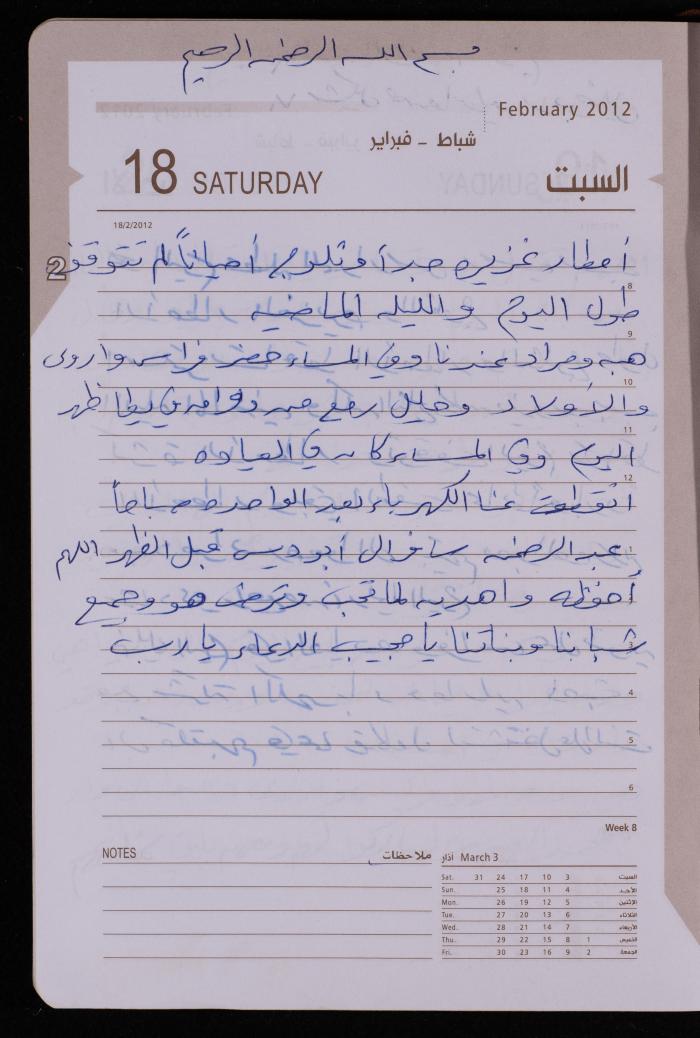 بسم الله الرحمن الرحيم
February 2012
شباط - فبراير
18 SATURDAY
السبت
18/2/2012
أمطار غزيره جداً وثلوج أحياناً لم تتوقف
2
8
طول اليوم والليله الماضيه
9
هبه ومراد عندنا وفي المساء حضر فراس واروى
10
والأولاد وخليل رجع من ظهر
11
اليوم وفي المساء كان في العياده
12
انقطعت عنا الكهرباء بعد الواحده صباحاً
1
عبد الرحمن سافر ال أبوديس قبل الظهر اللهم
أحفظه واهديه لما تحب وترضى هو وجميع
3
شبابنا وبناتنا يا مجيب الدعاء يا رب
4
5
6
Week 8
NOTES ملاحظات
March 3 آذار
Sat. 31 24 17 10 3 السبت
Sun. 25 18 11 4 الأحد
Mon. 26 19 12 5 الإثنين
Tue. 27 20 13 6 الثلاثاء
Wed. 28 21 14 7 الأربعاء
Thu. 29 22 15 8 1 الخميس
Fri. 30 23 16 9 2 الجمعة